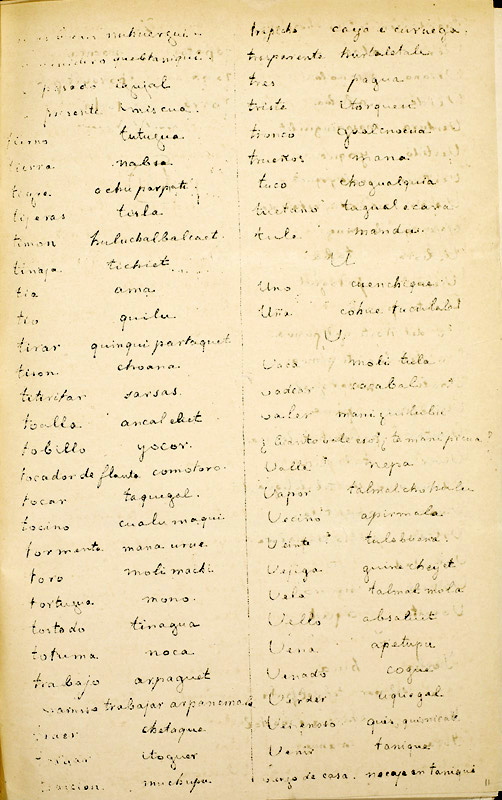 nukuerqui
pesado iquial
pesente kmiscua
tierno tutugua
tierra nabsa
tigre achu parpati
tijeras tisla
timon kuluchalbalcaet
tinaja tichiet
tia ama
tio quilu
tirar quinquipartaquet
tison choana
titiritar sarsas
toalla ancalebiet
tobillo yocor
tocador de flauta comotoro
tocar taquegal
tocino cualu maqui
tormenta mana urue
toro moli macki
tortuga mono
tostado tinagua
totuma noca
trabajo arpaguet
trabajar arpanemala
traer chetaque
itoguer
muchupu
trapiche caya e curuega
trasparente kurtaletali
tres pagua
triste itorqueri
tronco gualcnocua
truenos mana
tuco chogualquia
tuetano tagual e cara
tule mandu
U
Uno cuenchique
Uña cohue tuculabal
V
Vaca moli tiela
vadear sasabali
valer maniquitielii
Valle nepa
Vapor talmalchokalu
Vecino apirmala
Veinte tulabuena
Vejiga guinecheyet
Vela talmal mola
Vello absaliet
Vena apetupu
Venado cogue
Vender uquegal
Venenoso
Venir tanique
de casa. necapentaniqui